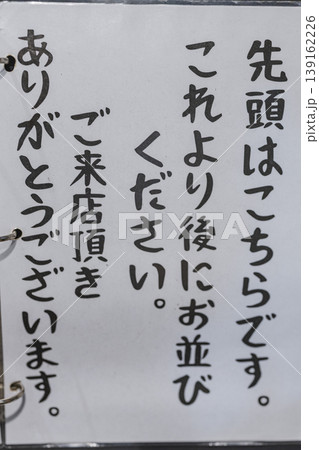 先頭はこちらです。
これより後にお並び
ください。
ご来店頂き
ありがとうございます。
PIXTA
pixta.jp - 139162226